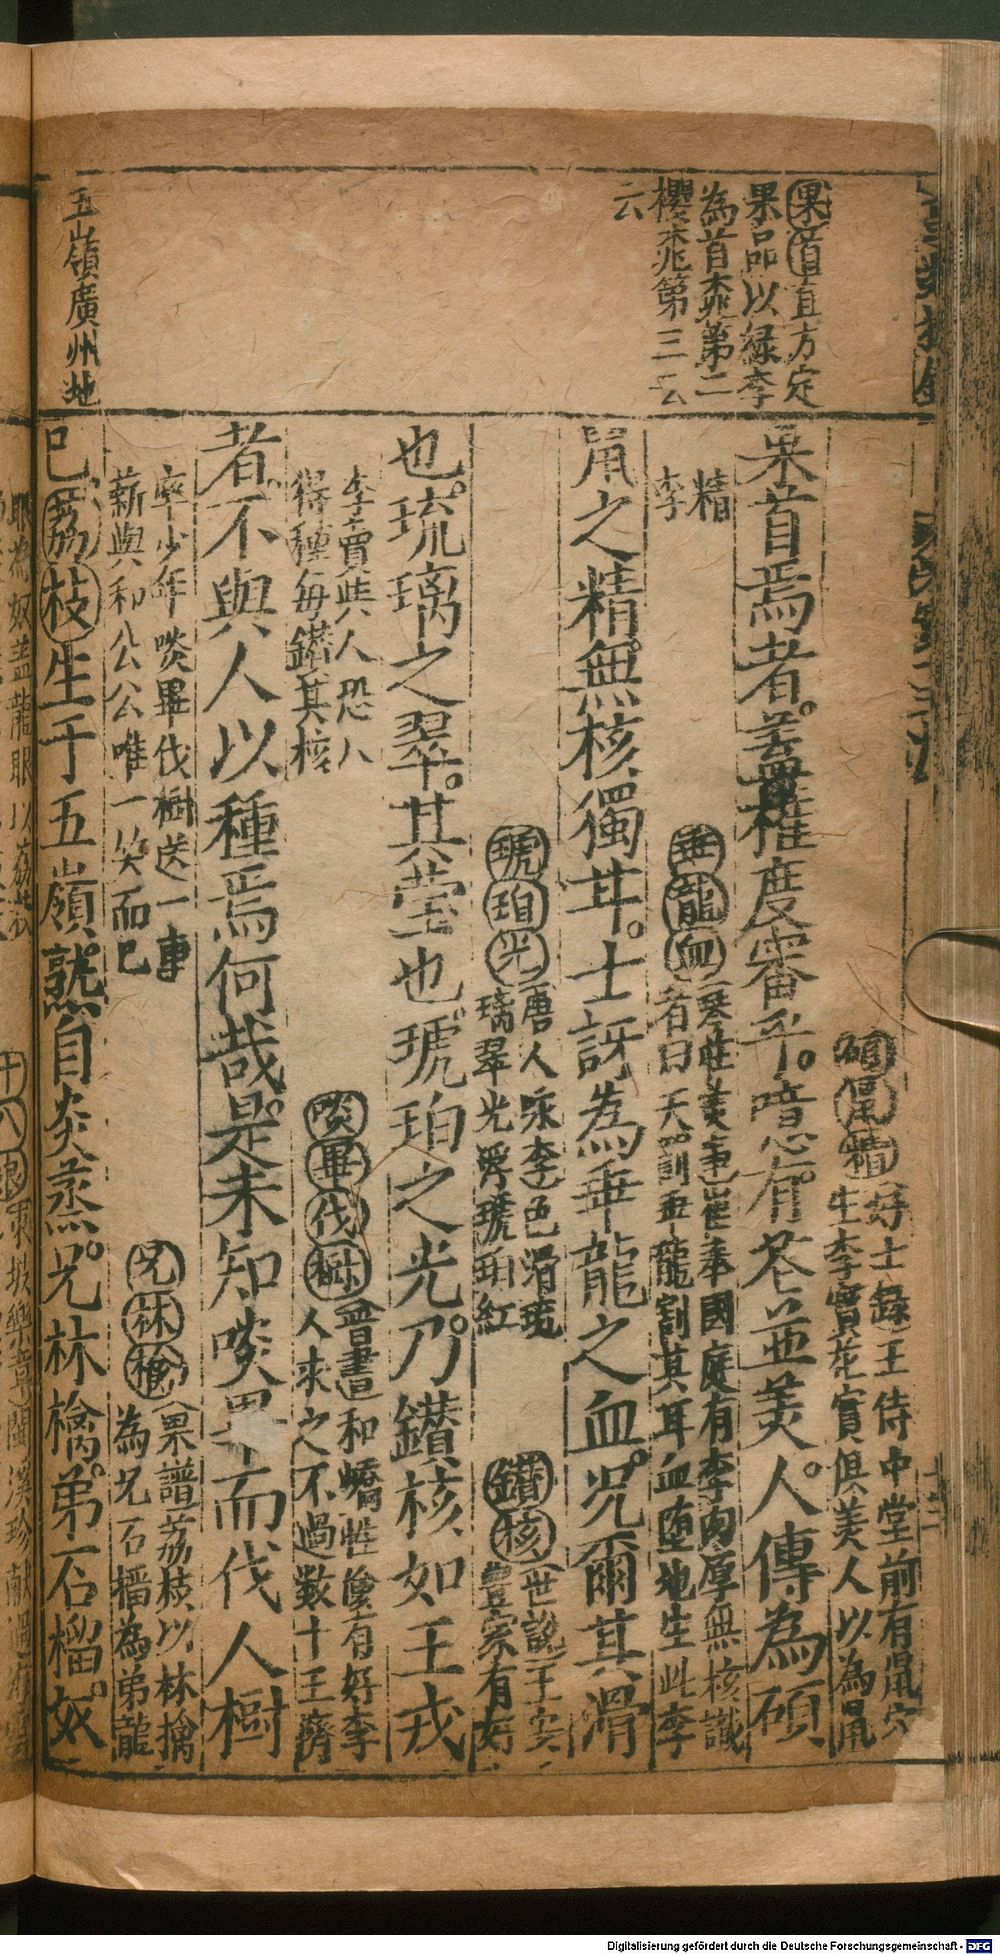 果首直方定
果品以緑李
為首柰第二
櫻柰第三云
云
五嶺廣州地
果首焉者。蓋權度審乎。噫有苍並羙人。傳為碩
碩鼠精
好士録王侍中堂前有鼠穴
生李實花實俱美人以為鼠
精
李
鼠之精。無核獨茸。士訝為垂龍之血。况爾其滑
垂龍血
琴莊羙事崔奉國庭有李肉厚無核識
者曰天罰垂龍割其耳血堕地生此李
也。琉璃之翠。其莹也。琥珀之光。乃鑚核如王戎
琥珀光
唐人咏李色滑琉
璃翠光浮琥珀紅
鑚核
世說王安
豊家有好
李賣與人恐人
得種每鑚其核
者。不與人以種焉何哉。是未知啖畢而伐人樹
啖畢伐樹
晉書和嶠性儉有好李
人求之不過数十王濟
率少年啖畢伐樹送一車
薪與和公公唯一笑而已
巳荔枝生于五嶺。就自炎蒸。兄林檎。弟石榴。奴
兄林檎
果譜荔枝以林擒
為兄石榴為弟龍
眼為奴盖龍眼以荔枝
十八娘東坡樂章閩溪珍献
Digitalisierung gefördert durch die Deutsche Forschungsgemeinschaft - DFG